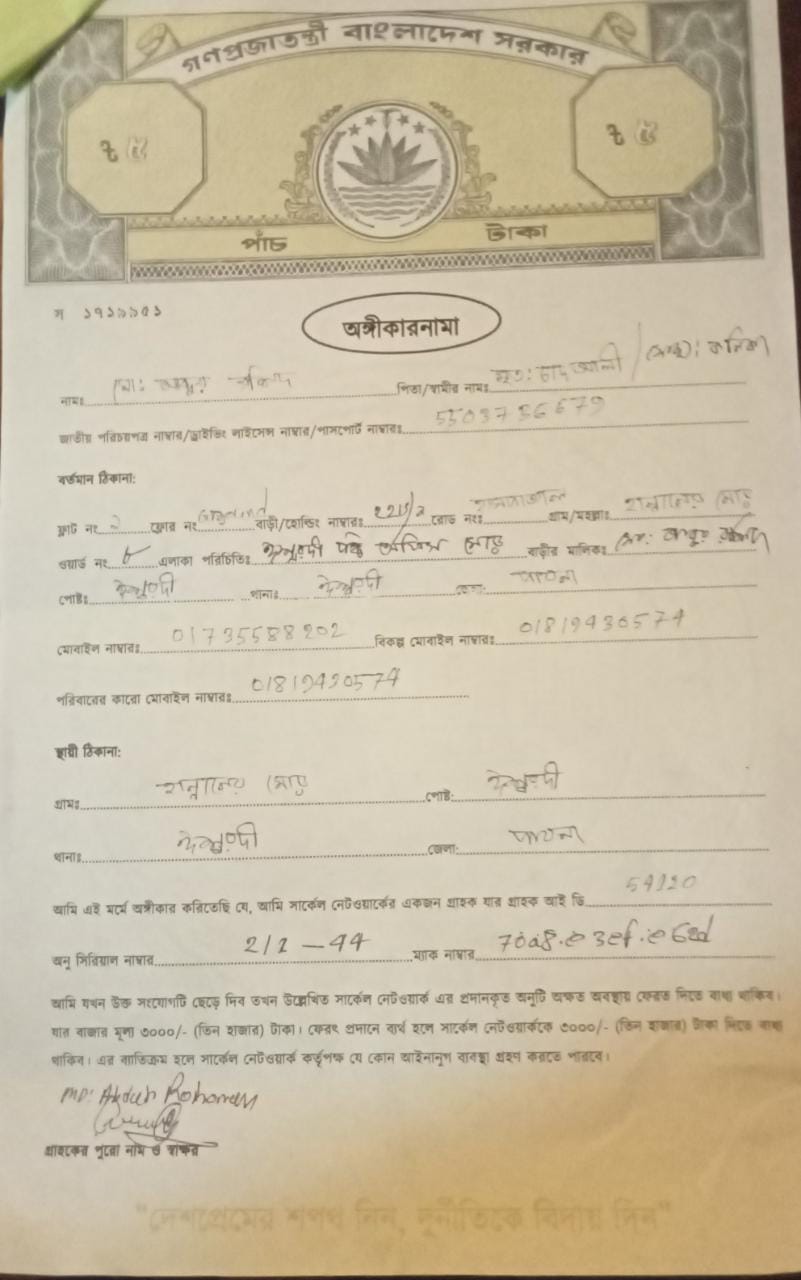 গণপ্রজাতন্ত্রী বাংলাদেশ সরকার
৳ ৫ ৳ ৫
পাঁচ টাকা
অঙ্গীকারনামা
নামঃ পিতা/স্বামীর নামঃ মৃত: চাদ আলী /
জাতীয় পরিচয়পত্র নাম্বার/ড্রাইভিং লাইসেন্স নাম্বার/পাসপোর্ট নাম্বারঃ 5503736679
বর্তমান ঠিকানা:
ফ্লাট নং ফ্লোর নং বাড়ী/হোল্ডিং নাম্বারঃ রোড নংঃ গ্রাম/মহল্লাঃ
ওয়ার্ড নং ৮ এলাকা পরিচিতিঃ ঈশ্বরদী মোড় বাড়ীর মালিকঃ
পোষ্টঃ ঈশ্বরদী থানাঃ ঈশ্বরদী জেলা: পাবনা
মোবাইল নাম্বারঃ 01735588202 বিকল্প মোবাইল নাম্বারঃ
পরিবারের কারো মোবাইল নাম্বারঃ
স্থায়ী ঠিকানা:
গ্রামঃ মোড় পোষ্ট: ঈশ্বরদী
থানাঃ ঈশ্বরদী জেলা: পাবনা
আমি এই মর্মে অঙ্গীকার করিতেছি যে, আমি সার্কেল নেটওয়ার্কের একজন গ্রাহক যার গ্রাহক আই ডি
অনু সিরিয়াল নাম্বার 2/1 - 44 ম্যাক নাম্বার
আমি যখন উক্ত সংযোগটি ছেড়ে দিব তখন উল্লেখিত সার্কেল নেটওয়ার্ক এর প্রদানকৃত অনুটি অক্ষত অবস্থায় ফেরত দিতে বাধ্য থাকিব।
যার বাজার মূল্য ৩০০০/- (তিন হাজার) টাকা। ফেরৎ প্রদানে ব্যর্থ হলে সার্কেল নেটওয়ার্ককে ৩০০০/- (তিন হাজার) টাকা দিতে বাধ্য
থাকিব। এর ব্যতিক্রম হলে সার্কেল নেটওয়ার্ক কর্তৃপক্ষ যে কোন আইনানুগ ব্যবস্থা গ্রহণ করতে পারবে।
MD: Abdur Rohoman
গ্রাহকের পুরো নাম ও স্বাক্ষর
"দেশপ্রেমের শপথ নিন, দুর্নীতিকে বিদায় দিন"